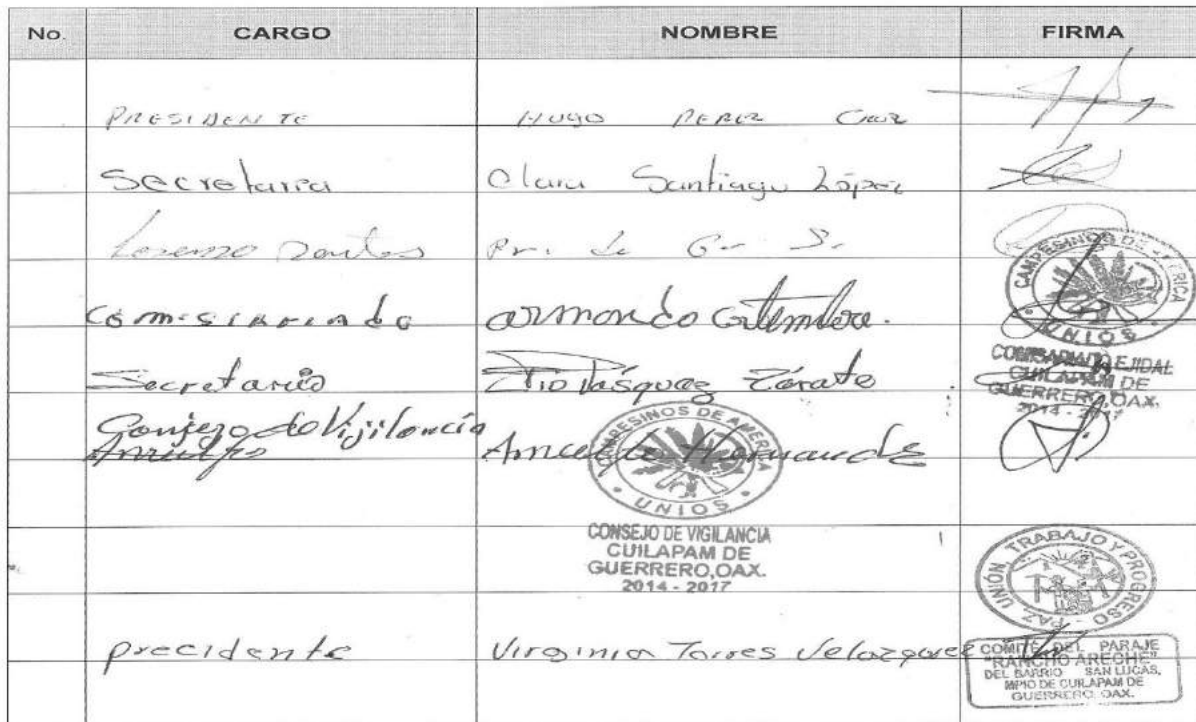 No. CARGO NOMBRE FIRMA
PRESIDENTE HUGO PEREZ Cruz
Secretaria Clara Santiago López
Lorenzo Santos
comisariado armando
CAMPESINOS DE AMERICA
UNIOS
COMISARIADO EJIDAL
CUILAPAM DE
GUERRERO, OAX.
2014 - 2017
Secretario Pio Vásquez Zárate
Consejo de Vijilancia
Hernande
CAMPESINOS DE AMERICA
UNIOS
CONSEJO DE VIGILANCIA
CUILAPAM DE
GUERRERO, OAX.
2014 - 2017
UNIÓN TRABAJO Y PROGRESO - PAZ
precidente Virginia Torres Velazquez
COMITÉ DEL PARAJE
"RANCHO ARECHE"
DEL BARRIO SAN LUCAS,
MPIO DE CUILAPAM DE
GUERRERO, OAX.